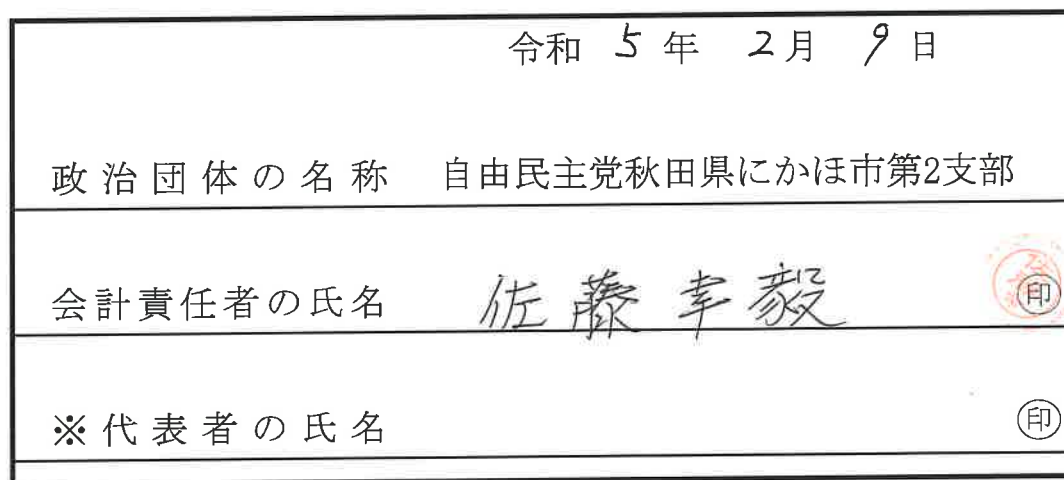 令和 5 年 2月 9日
政治団体の名称 自由民主党秋田県にかほ市第2支部
会計責任者の氏名 佐藤幸毅 印
※代表者の氏名 印